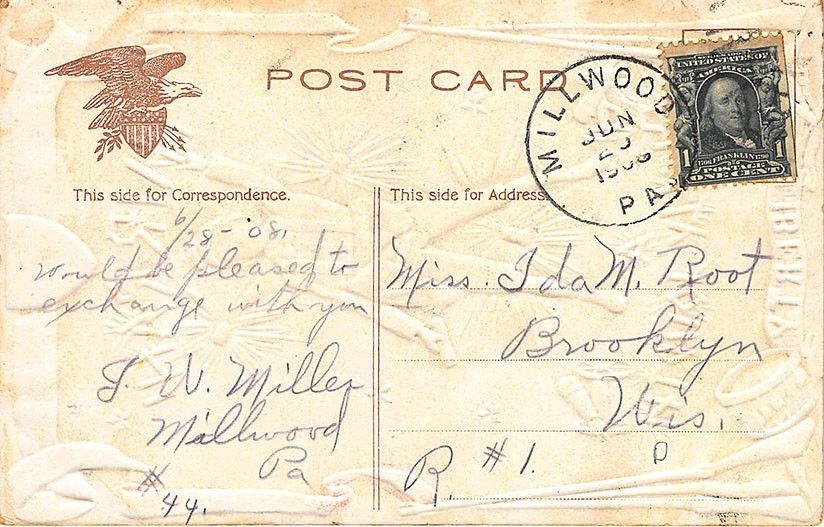 POST CARD
MILLWOOD
JUN
1908
PA
UNITED STATES OF
AMERICA
1706 FRANKLIN 1790
POSTAGE
1 ONE CENT 1
This side for Correspondence.
6/28-'08.
Would be pleased to
exchange with you
J. W. Miller
Millwood
Pa
# 44.
This side for Address.
Miss. Ida M. Root
Brooklyn
Wis.
R. #1.
LIBERTY